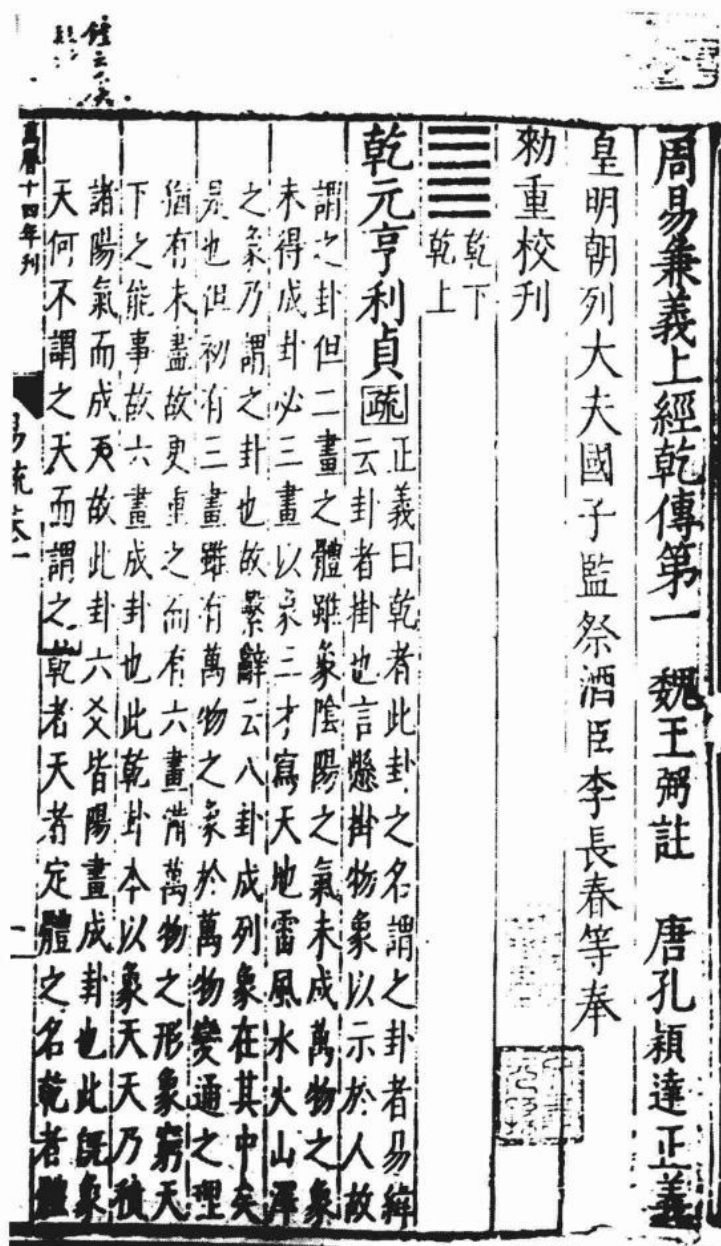 周易兼義上經乾傳第一　魏王弼註　唐孔穎達正義
皇明朝列大夫國子監祭酒臣李長春等奉
勑重校刊
乾下
乾上
乾元亨利貞疏
正義曰乾者此卦之名謂之卦者易緯
云卦者掛也言懸掛物象以示於人故
謂之卦但二畫之體雖象陰陽之氣未成萬物之象
未得成卦必三畫以象三才寫天地雷風水火山澤
之象乃謂之卦也故繫辭云八卦成列象在其中矣
是也但初有三畫雖有萬物之象於萬物變通之理
猶有未盡故更重之而有六畫備萬物之形象窮天
下之能事故六畫成卦也此乾卦本以象天天乃積
諸陽氣而成天故此卦六爻皆陽畫成卦也此既象
天何不謂之天而謂之乾者天者定體之名乾者體
萬曆十四年刊
易疏卷一
一